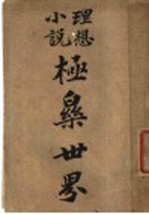 理想
小說
極樂世界